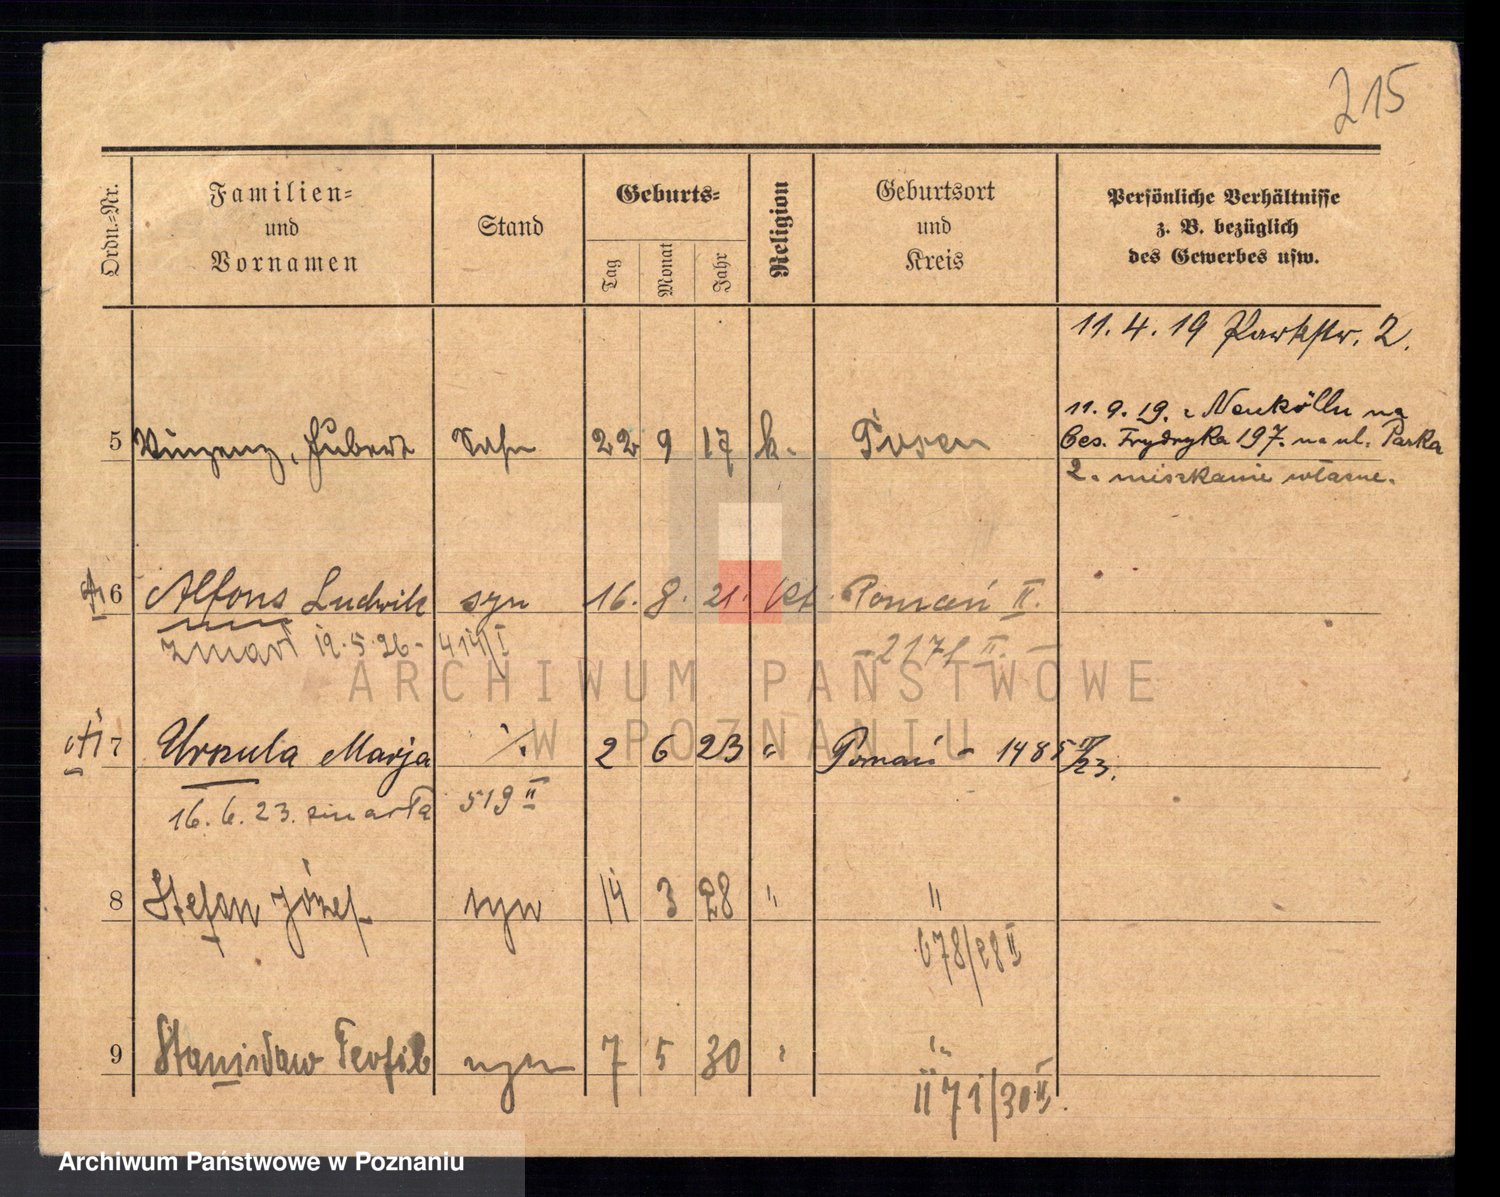 215
Ordn.-Nr.
Familien-
und
Vornamen
Stand
Geburts-
Tag
Monat
Jahr
Religion
Geburtsort
und
Kreis
Persönliche Verhältnisse
z. B. bezüglich
des Gewerbes usw.
11. 4. 19 Parkstr. 2.
11. 9. 19. z Neukölln na
Ces. Frydryka 197. na ul. Parka
2. mieszkanie własne.
5 Vinzenz, Hubert Sohn 22 9 17 k. Posen
6 Alfons Ludwik syn 16. 8. 21. kt. Poznań II.
zmarł 19. 5. 26 - 414/I
2171 II.
7 Urszula Marja ./. 2 6 23 " Poznań - 1485 II/23.
16. 6. 23. zmarła 519 II
8 Stefan Józef syn 14 3 28 " "
678/28 II
9 Stanisław Teofil syn 7 5 30 " "
1171/30 II.
ARCHIWUM PAŃSTWOWE
W POZNANIU
Archiwum Państwowe w Poznaniu